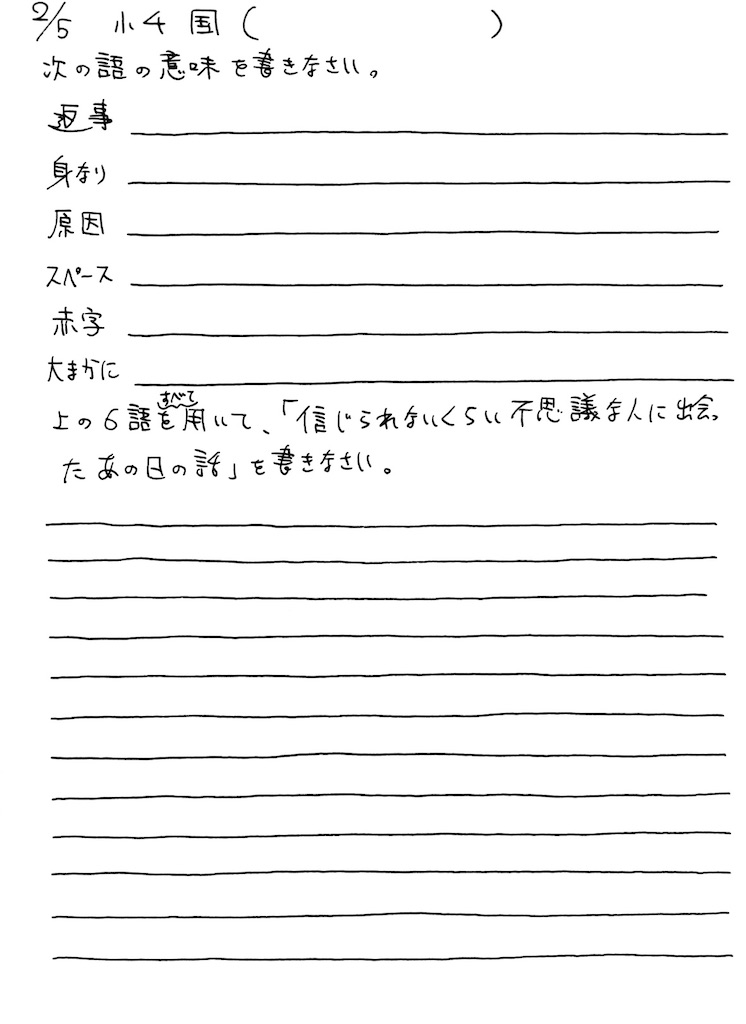 2/5 小4国( )
次の語の意味を書きなさい。
返事
身なり
原因
スペース
赤字
大まかに
すべて
上の6語を用いて、「信じられないくらい不思議な人に出会っ
たあの日の話」を書きなさい。